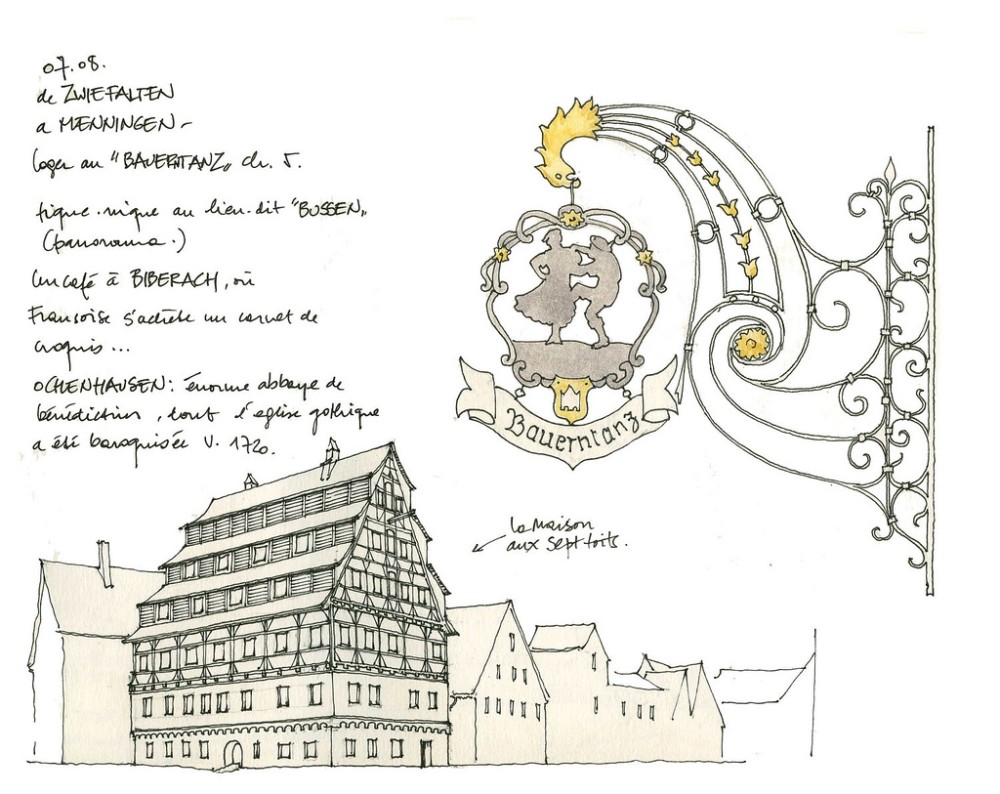 07.08.
de ZWIEFALTEN
a MEMNINGEN -
loger au "BAUERNTANZ" ch. 5.
pique-nique au lieu-dit "BUSSEN"
(panorama.)
Un café à BIBERACH, où
Françoise s'achète un carnet de
croquis...
OCHENHAUSEN: énorme abbaye de
bénédictins, dont l'eglise gothique
a été baroquisée v. 1720.
Bauerntanz
la maison
aux sept toits.